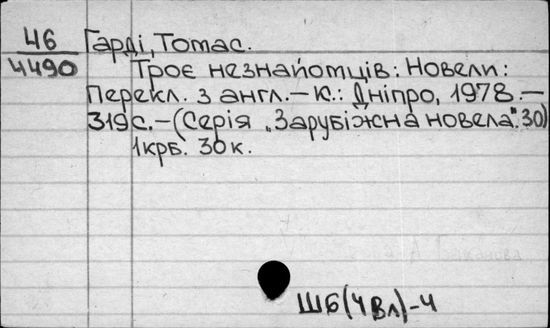 46 Гарді, Томас.
4490 Троє незнайомців: Новели:
Перекл. з англ.– К.: Дніпро, 1978.–
319с.–(Серія „Зарубіжна новела". 30)
1крб. 30к.
ШБ(4Вл)-4